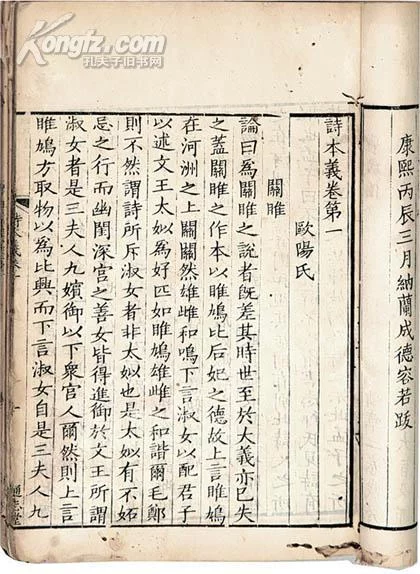 康熙丙辰三月納蘭成德容若跋
詩本義卷第一
歐陽氏
關雎
論曰為關雎之說者既差其時世至於大義亦已失
之蓋關雎之作本以雎鳩比后妃之德故上言雎鳩
在河洲之上關關然雄雌和鳴下言淑女以配君子
以述文王太姒為好匹如雎鳩雄雌之和諧爾毛鄭
則不然謂詩所斥淑女者非太姒也是太姒有不妬
忌之行而幽閨深宮之善女皆得進御於文王所謂
淑女者是三夫人九嬪御以下衆官人爾然則上言
雎鳩方取物以為比興而下言淑女自是三夫人九
通志堂
Kongfz.com
孔夫子旧书网